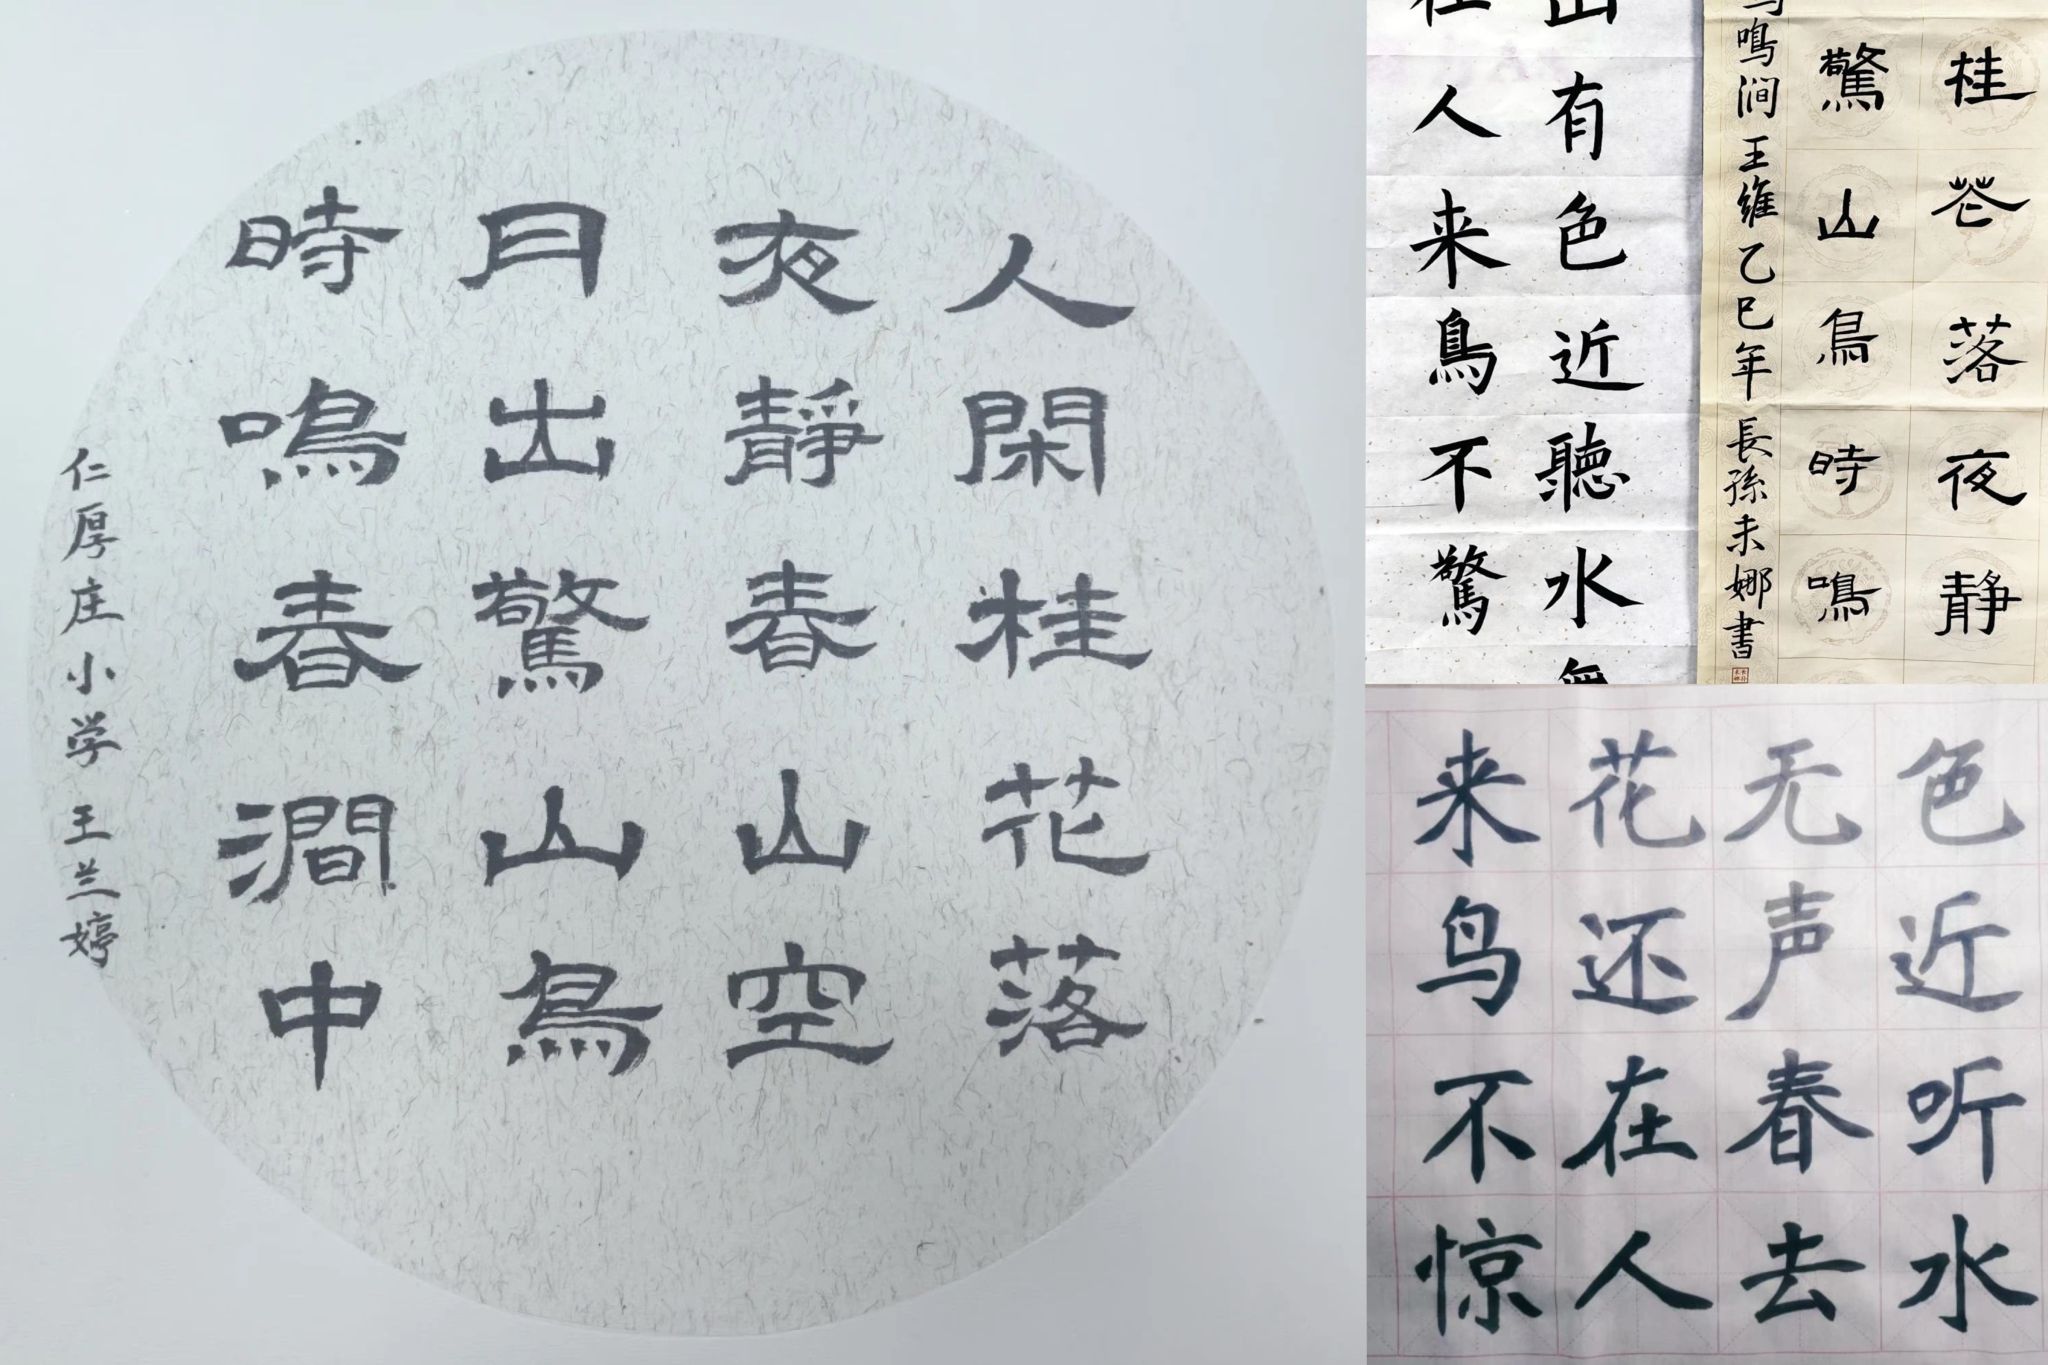 人閑桂花落
夜靜春山空
月出驚山鳥
時鳴春澗中
仁厚庄小学王兰婷
有色近聽水
人来鳥不驚
桂花落夜静
驚山鳥時鳴
鳴涧王維乙巳年長孫未娜書
色近听水
无声春去
花还在人
来鸟不惊